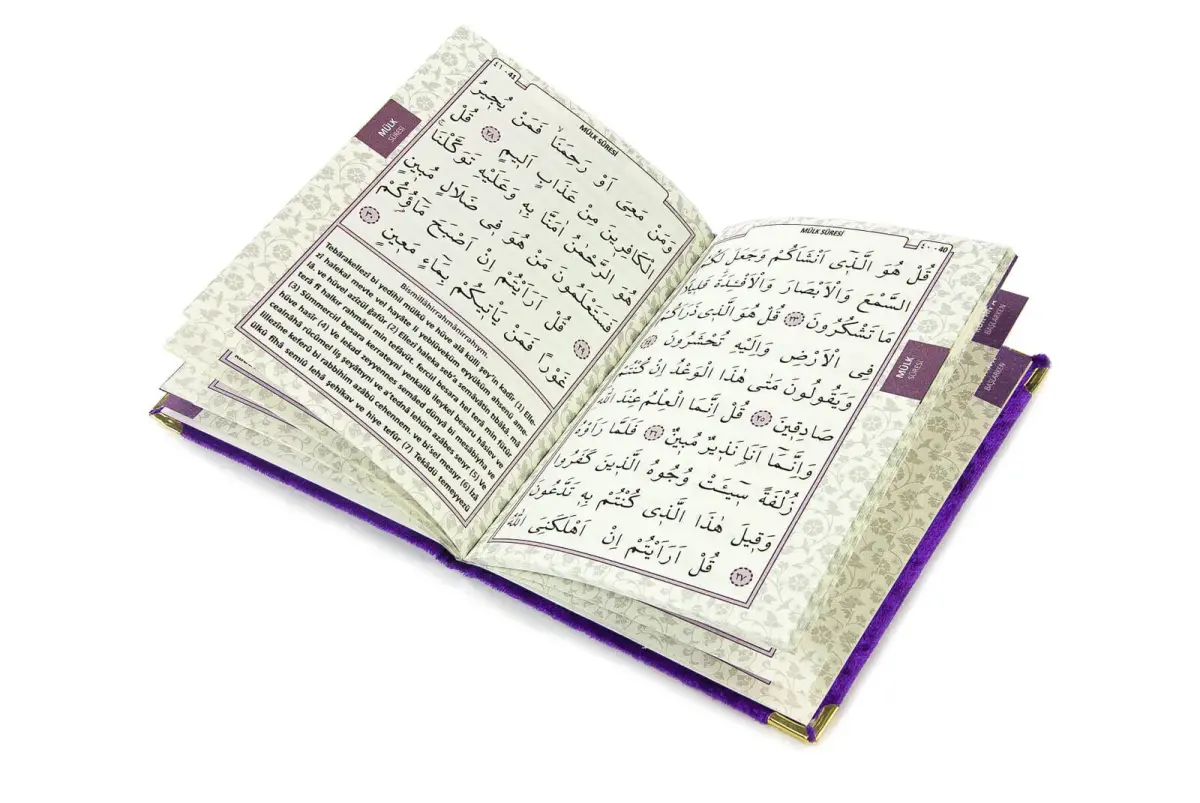 MÜLK SÛRESİ
٤٠ - 40
قُلْ هُوَ الَّذ۪ٓى اَنْشَاَكُمْ وَجَعَلَ
السَّمْعَ وَالْاَبْصَارَ وَالْاَفْئِدَةَ قَل۪يلًا
مَا تَشْكُرُونَ ٢٣ قُلْ هُوَ الَّذ۪ى ذَرَاَكُمْ
فِى الْاَرْضِ وَاِلَيْهِ تُحْشَرُونَ ٢٤
وَيَقُولُونَ مَتٰى هٰذَا الْوَعْدُ اِنْ كُنْتُمْ
صَادِق۪ينَ ٢٥ قُلْ اِنَّمَا الْعِلْمُ عِنْدَ اللّٰهِ
وَاِنَّمَٓا اَنَا۬ نَذ۪يرٌ مُب۪ينٌ ٢٦ فَلَمَّا رَاَوْهُ
زُلْفَةً س۪ٓيـَٔتْ وُجُوهُ الَّذ۪ينَ كَفَرُوا
وَق۪يلَ هٰذَا الَّذ۪ى كُنْتُمْ بِه۪ تَدَّعُونَ
٢٧ قُلْ اَرَاَيْتُمْ اِنْ اَهْلَكَنِىَ اللّٰهُ
MÜLK
SÛRESİ
BAŞLARKEN
BAŞLARKEN
٤١ - 41
MÜLK SÛRESİ
وَمَنْ مَعِىَ اَوْ رَحِمَنَاۙ فَمَنْ يُج۪يرُ
الْكَافِر۪ينَ مِنْ عَذَابٍ اَل۪يمٍ ٢٨ قُلْ
هُوَ الرَّحْمٰنُ اٰمَنَّا بِه۪ وَعَلَيْهِ تَوَكَّلْنَا
فَسَتَعْلَمُونَ مَنْ هُوَ ف۪ى ضَلَالٍ مُب۪ينٍ
٢٩ قُلْ اَرَاَيْتُمْ اِنْ اَصْبَحَ مَٓاؤُ۬كُمْ
غَوْرًا فَمَنْ يَأْت۪يكُمْ بِمَٓاءٍ مَع۪ينٍ ٣٠
MÜLK
SÛRESİ
Bismillâhirrahmânirrahıym.
Tebârakellezî bi yedihil mülkü ve hüve alâ külli şey'in kadîr (1) Elle-
zî halekal mevte vel hayâte li yeblüveküm eyyüküm ahsenü ame-
lâ. ve hüvel azîzül ğafûr (2) Ellezî haleka seb'a semâvâtin tıbâkâ, mâ
terâ fî halkır rahmâni min tefâvüt. ferciıl besara hel terâ min fütûr
(3) Sümmerciıl besara kerrateyni yenkalib ileykel besaru hâsiev ve
hüve hasîr (4) Ve lekad zeyyennes semâed dünyâ bi mesâbîyha ve
cealnâhâ rucûmel liş şeyâtıyni ve a'tednâ lehüm azâbes seıyr (5) Ve
lillezîne keferû bi rabbihim azâbü cehennem. ve bi'sel mesıyr (6) İzâ
ülkû fîhâ semiû lehâ şehîkav ve hiye tefûr (7) Tekâdü temeyyezü